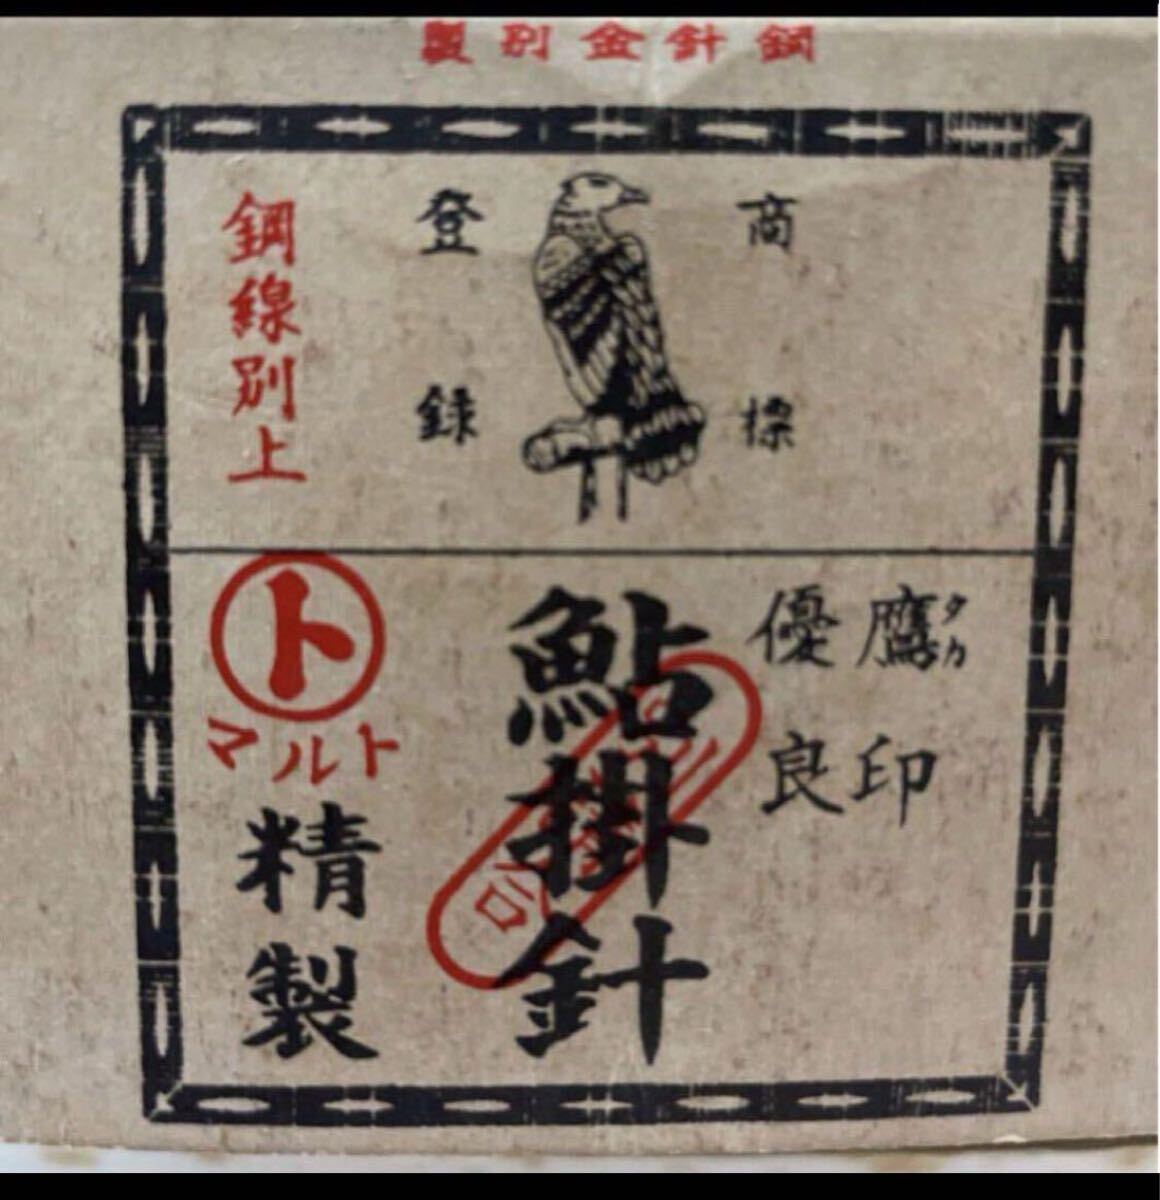 鋼針金別製
商標
登録
鋼線別上
鷹印
タカ
優良
鮎掛針
ト
マルト
精製